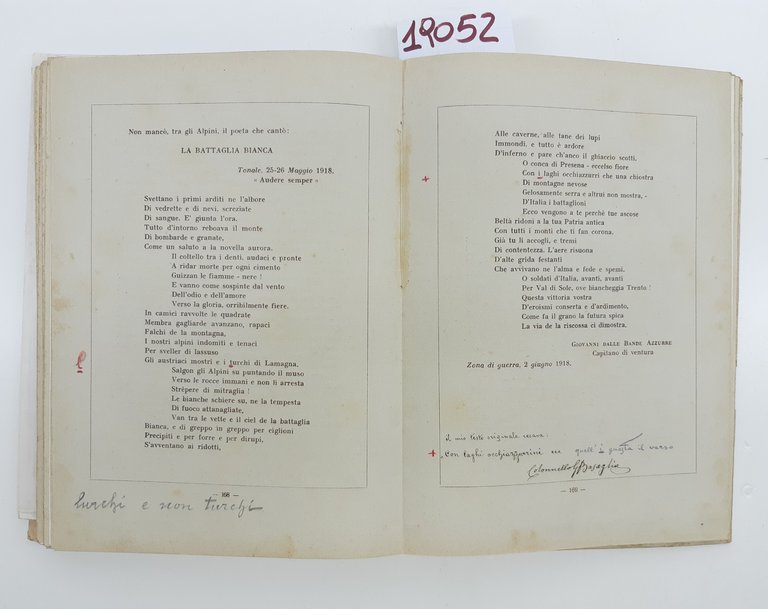 19052
Non mancò, tra gli Alpini, il poeta che cantò:
LA BATTAGLIA BIANCA
Tonale, 25-26 Maggio 1918.
« Audere semper »
Svettano i primi arditi ne l'albore
Di vedrette e di nevi, screziate
Di sangue. E' giunta l'ora.
Tutto d'intorno reboava il monte
Di bombarde e granate,
Come un saluto a la novella aurora.
Il coltello tra i denti, audaci e pronte
A ridar morte per ogni cimento
Guizzan le fiamme - nere !
E vanno come sospinte dal vento
Dell'odio e dell'amore
Verso la gloria, orribilmente fiere.
In camici ravvolte le quadrate
Membra gagliarde avanzano, rapaci
Falchi de la montagna,
I nostri alpini indomiti e tenaci
Per sveller di lassuso
Gli austriaci mostri e i turchi di Lamagna.
l
Salgon gli Alpini su puntando il muso
Verso le rocce immani e non li arresta
Strèpere di mitraglia !
Le bianche schiere su, ne la tempesta
Di fuoco attanagliate,
Van tra le vette e il ciel de la battaglia
Bianca, e di greppo in greppo per ciglioni
Precipiti e per forre e per dirupi,
S'avventano ai ridotti,
— 168 —
lurchi e non turchi
Alle caverne, alle tane dei lupi
Immondi, e tutto è ardore
D'inferno e pare ch'anco il ghiaccio scotti.
O conca di Presena - eccelso fiore
+ Con i laghi occhiazzurri che una chiostra
Di montagne nevose
Gelosamente serra e altrui non mostra, -
D'Italia i battaglioni
Ecco vengono a te perchè tue ascose
Beltà ridoni a la tua Patria antica
Con tutti i monti che ti fan corona.
Già tu li accogli, e tremi
Di contentezza. L'aere risuona
D'alte grida festanti
Che avvivano ne l'alma e fede e spemi.
O soldati d'Italia, avanti, avanti
Per Val di Sole, ove biancheggia Trento !
Questa vittoria vostra
D'eroismi conserta e d'ardimento,
Come fa il grano la futura spica
La via de la riscossa ci dimostra.
Giovanni dalle Bande Azzurre
Capitano di ventura
Zona di guerra, 2 giugno 1918.
Il mio testo originale recava:
+ "Con laghi occhiazzurrini quell' i guasta il verso
Colonnello
— 169 —